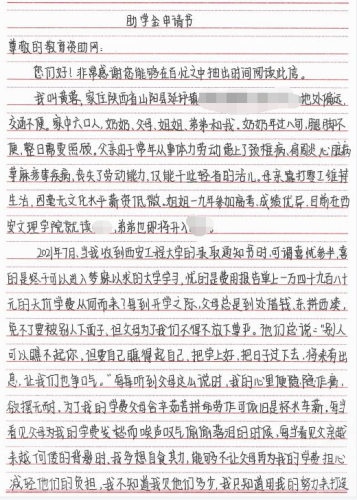 助学金申请书
尊敬的教育资助网:
您们好!非常感谢您能够在百忙之中抽出时间阅读此信。
我叫黄 ,家庄陕西省山阳县延坪镇 地处偏远,
交通不便。家中六口人,奶奶,父母,姐姐,弟弟和我。奶奶年过八旬,腿脚不
便,整日需要照顾。父亲由于常年从事体力劳动患上了颈椎病,肩周炎,心脏病
等麻多重疾病,丧失了劳动能力,仅能干些轻省的活儿。母亲靠打零工维持
生活,因毫无文化水平薪资低微。姐姐一九年参加高考,成绩优异,目前在西
安文理学院就读 弟弟也即将升入
2021年7月,当我收到西安工程大学的录取通知书时,可谓喜忧参半,喜
的是终于可以进入梦寐以求的大学学习,忧的是费用报告单上一万四千九百八十
元的大价学费从何而来?每到开学之际,父母总是到处借钱,东拼西凑,
免不了要被别人下面子,但父母为了我们不得不放下尊严。他们总说:“别人
可以瞧不起你,但要自己瞧得起自己,把学上好,把日子过下去,将来有出
息,让我们也争口气。”每每听到父母这么说时,我的心里便隐隐作痛,
欲摆无耐,为了我的学费父母含辛茹苦拼命劳作可依旧是杯水车薪,每当
看见父母为我的学费发愁而唉声叹气偷偷落泪的时候,每当看见父亲越
来越佝偻的背脊时,我多想自食其力,能够不让父母再为我的学费担心
减轻他们的负担,我不知道我欠他们多少,我只知道用我的努力来打造